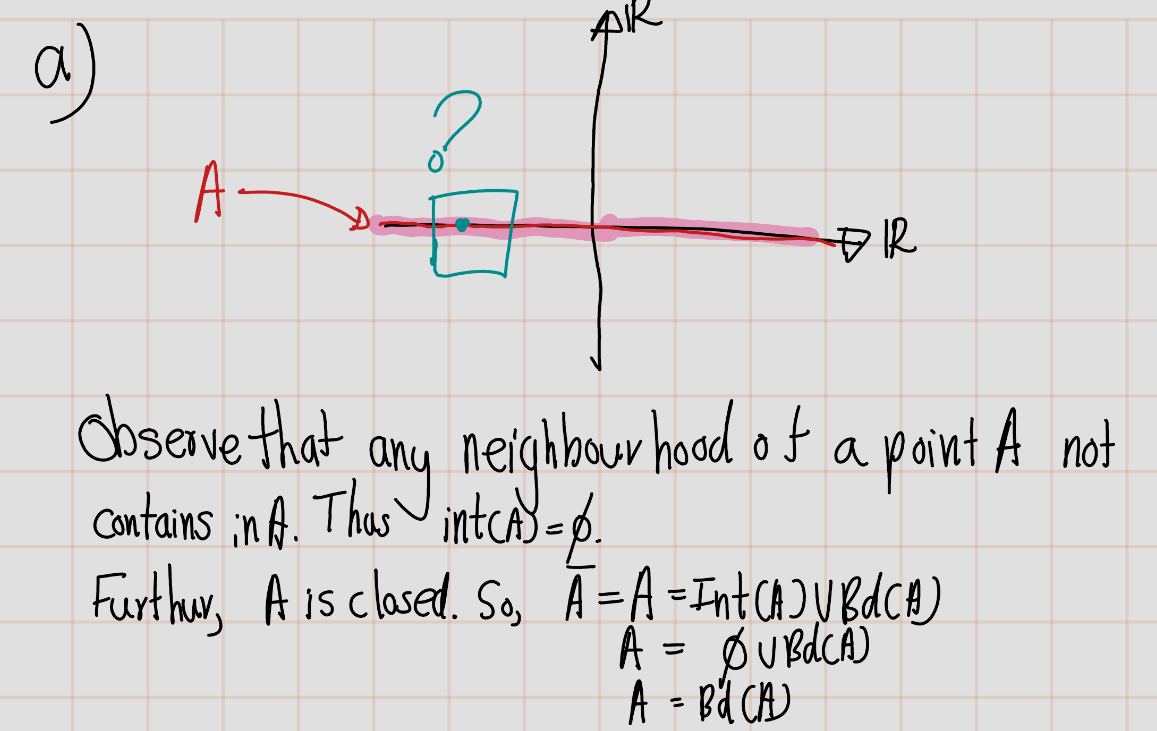 a)
IR
?
A
IR
Observe that any neighbourhood of a point A not
contains in A. Thus int(A) = ∅.
Furthur, A is closed. So, A̅ = A = Int(A) ∪ Bd(A)
A = ∅ ∪ Bd(A)
A = Bd(A)